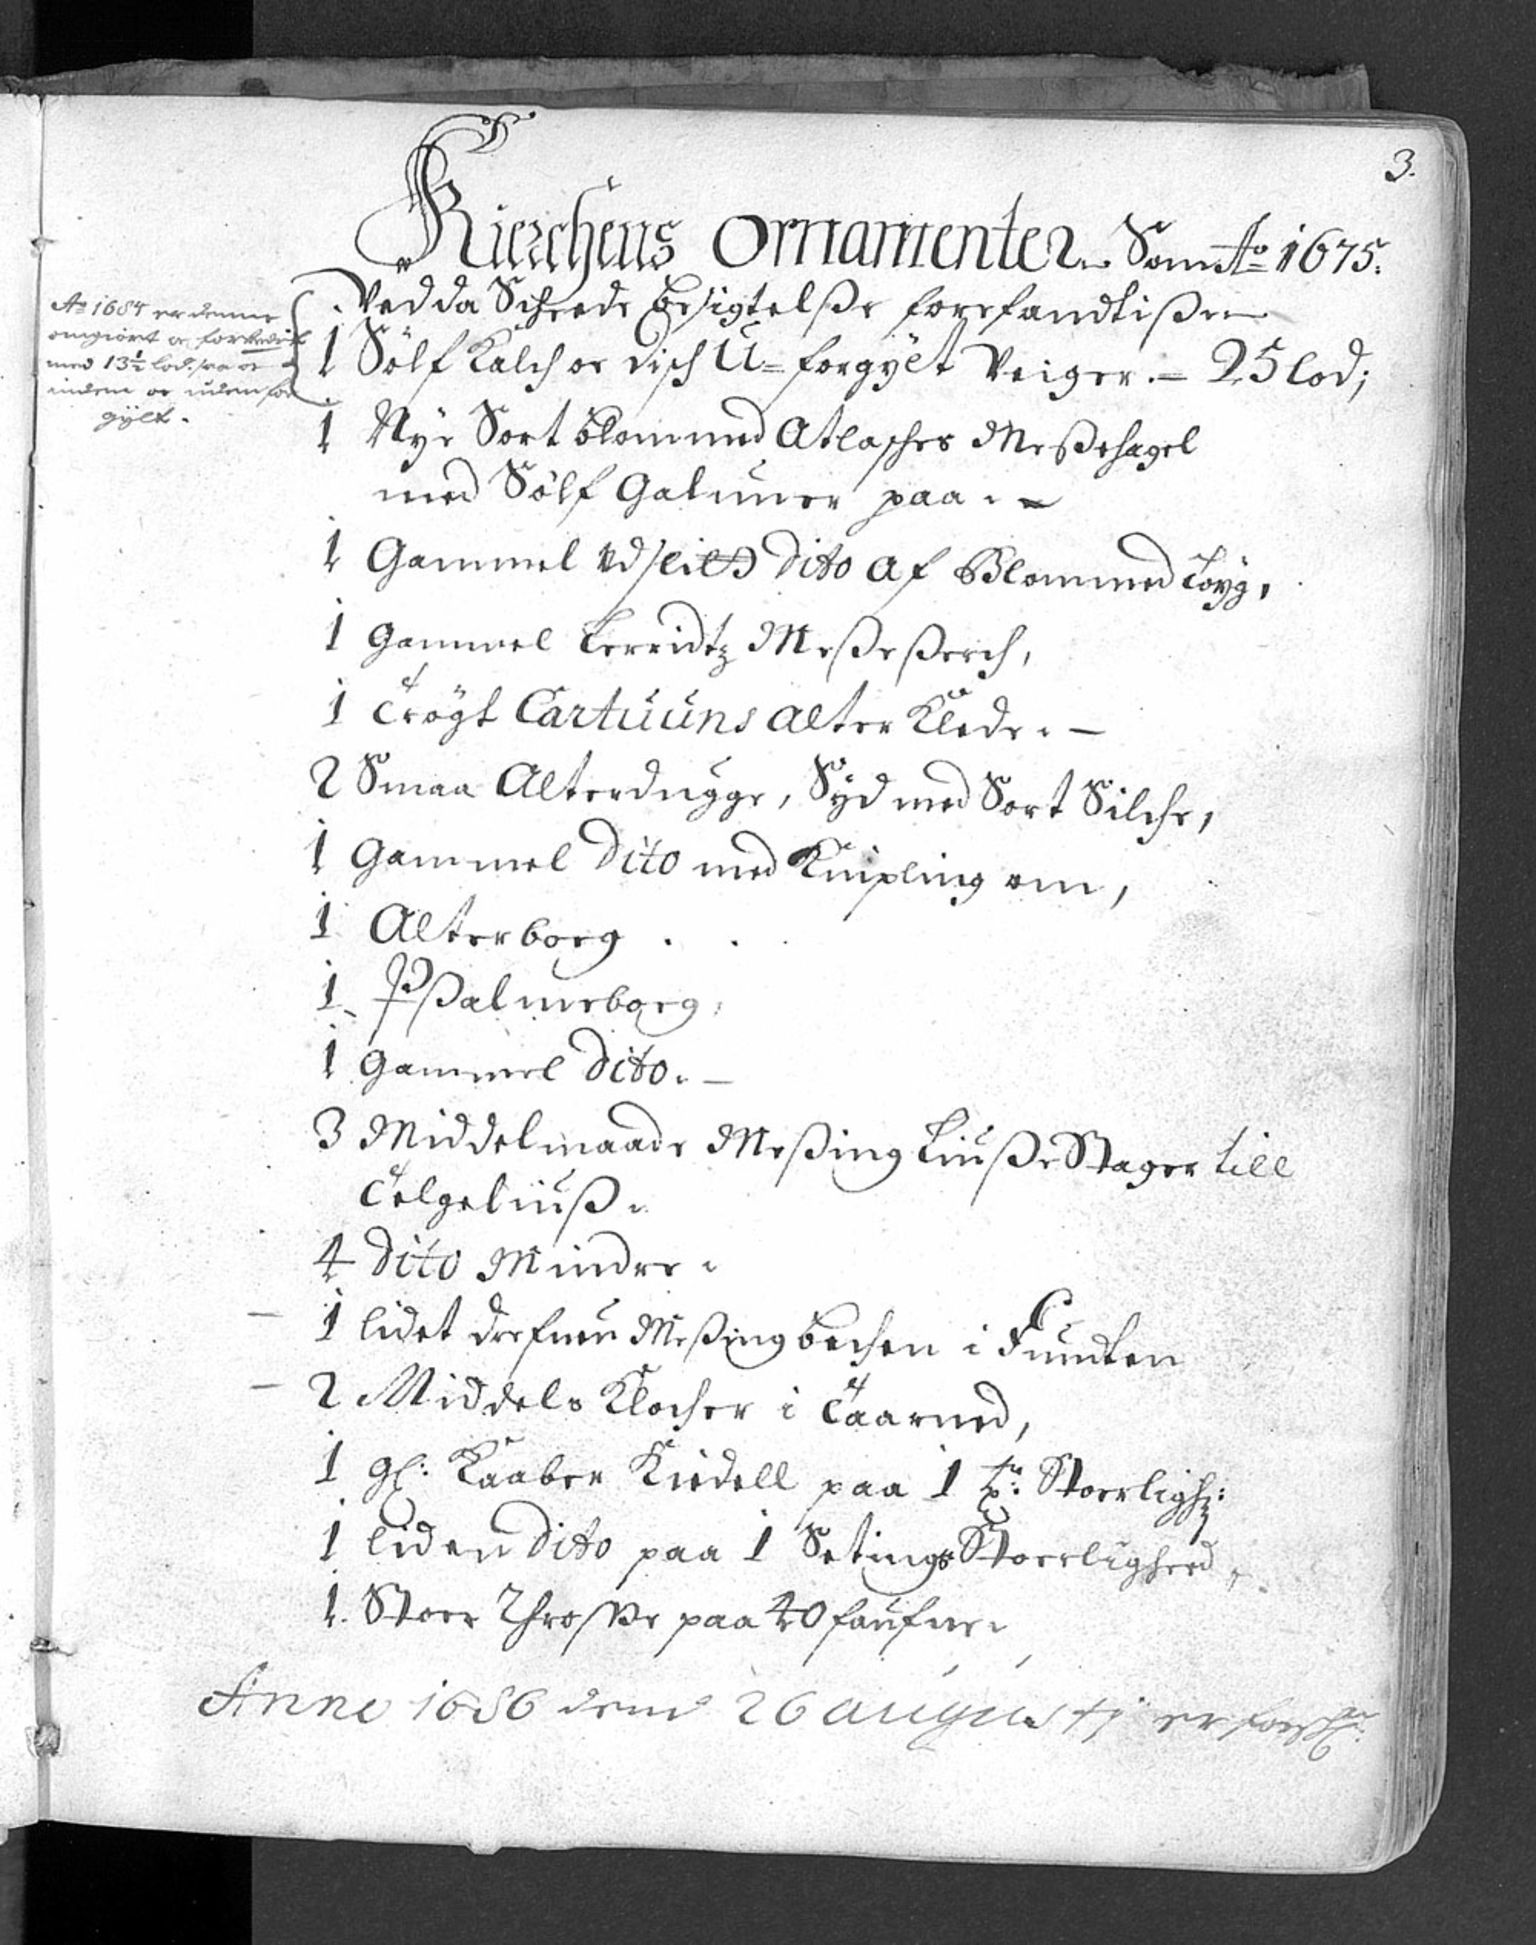 3.
Kierchens Ornamenter Som Ao 1675.
Ved da Scheede besigtelße forefandtiß
Ao 1684 er denne
omgiort oc forbedrit
med 13½ lod, saa oc
inden oc uden for
gÿlt.
1 Sølf Kalch oc Disch U=forgÿlt Veiger. – 25 lod;
1 Nye Sort blommed Atlasches Meßehagel
med Sølf Galuner paa. –
1 Gammel udslidt dito af Blommed Tøyg,
1 Gammel Lerridtz Meßeßerch,
1 Trögt Cartuuns alter Klede. –
2 Smaa Alterdugge, Sÿd med Sort Silche,
1 Gammel Dito med Knipling om,
1 Alterboeg .
1 Pßalmeboeg,
1 Gammel Dito. –
3 Middelmaade Meßing Liuße Stager till
Telgeliuß.
4 Dito Mindre.
– 1 lidet drefuen Meßing bechen i Funten
– 2 Middels Klocher i Taarned,
1 gl: Kaaber Kiedell paa 1 tr: Stoerligh:
1 liden Dito paa 1 Setings Stoerlighed,
1. Stoer Throße paa 40 faufne.
Anno 1686 dend 26 augustij er